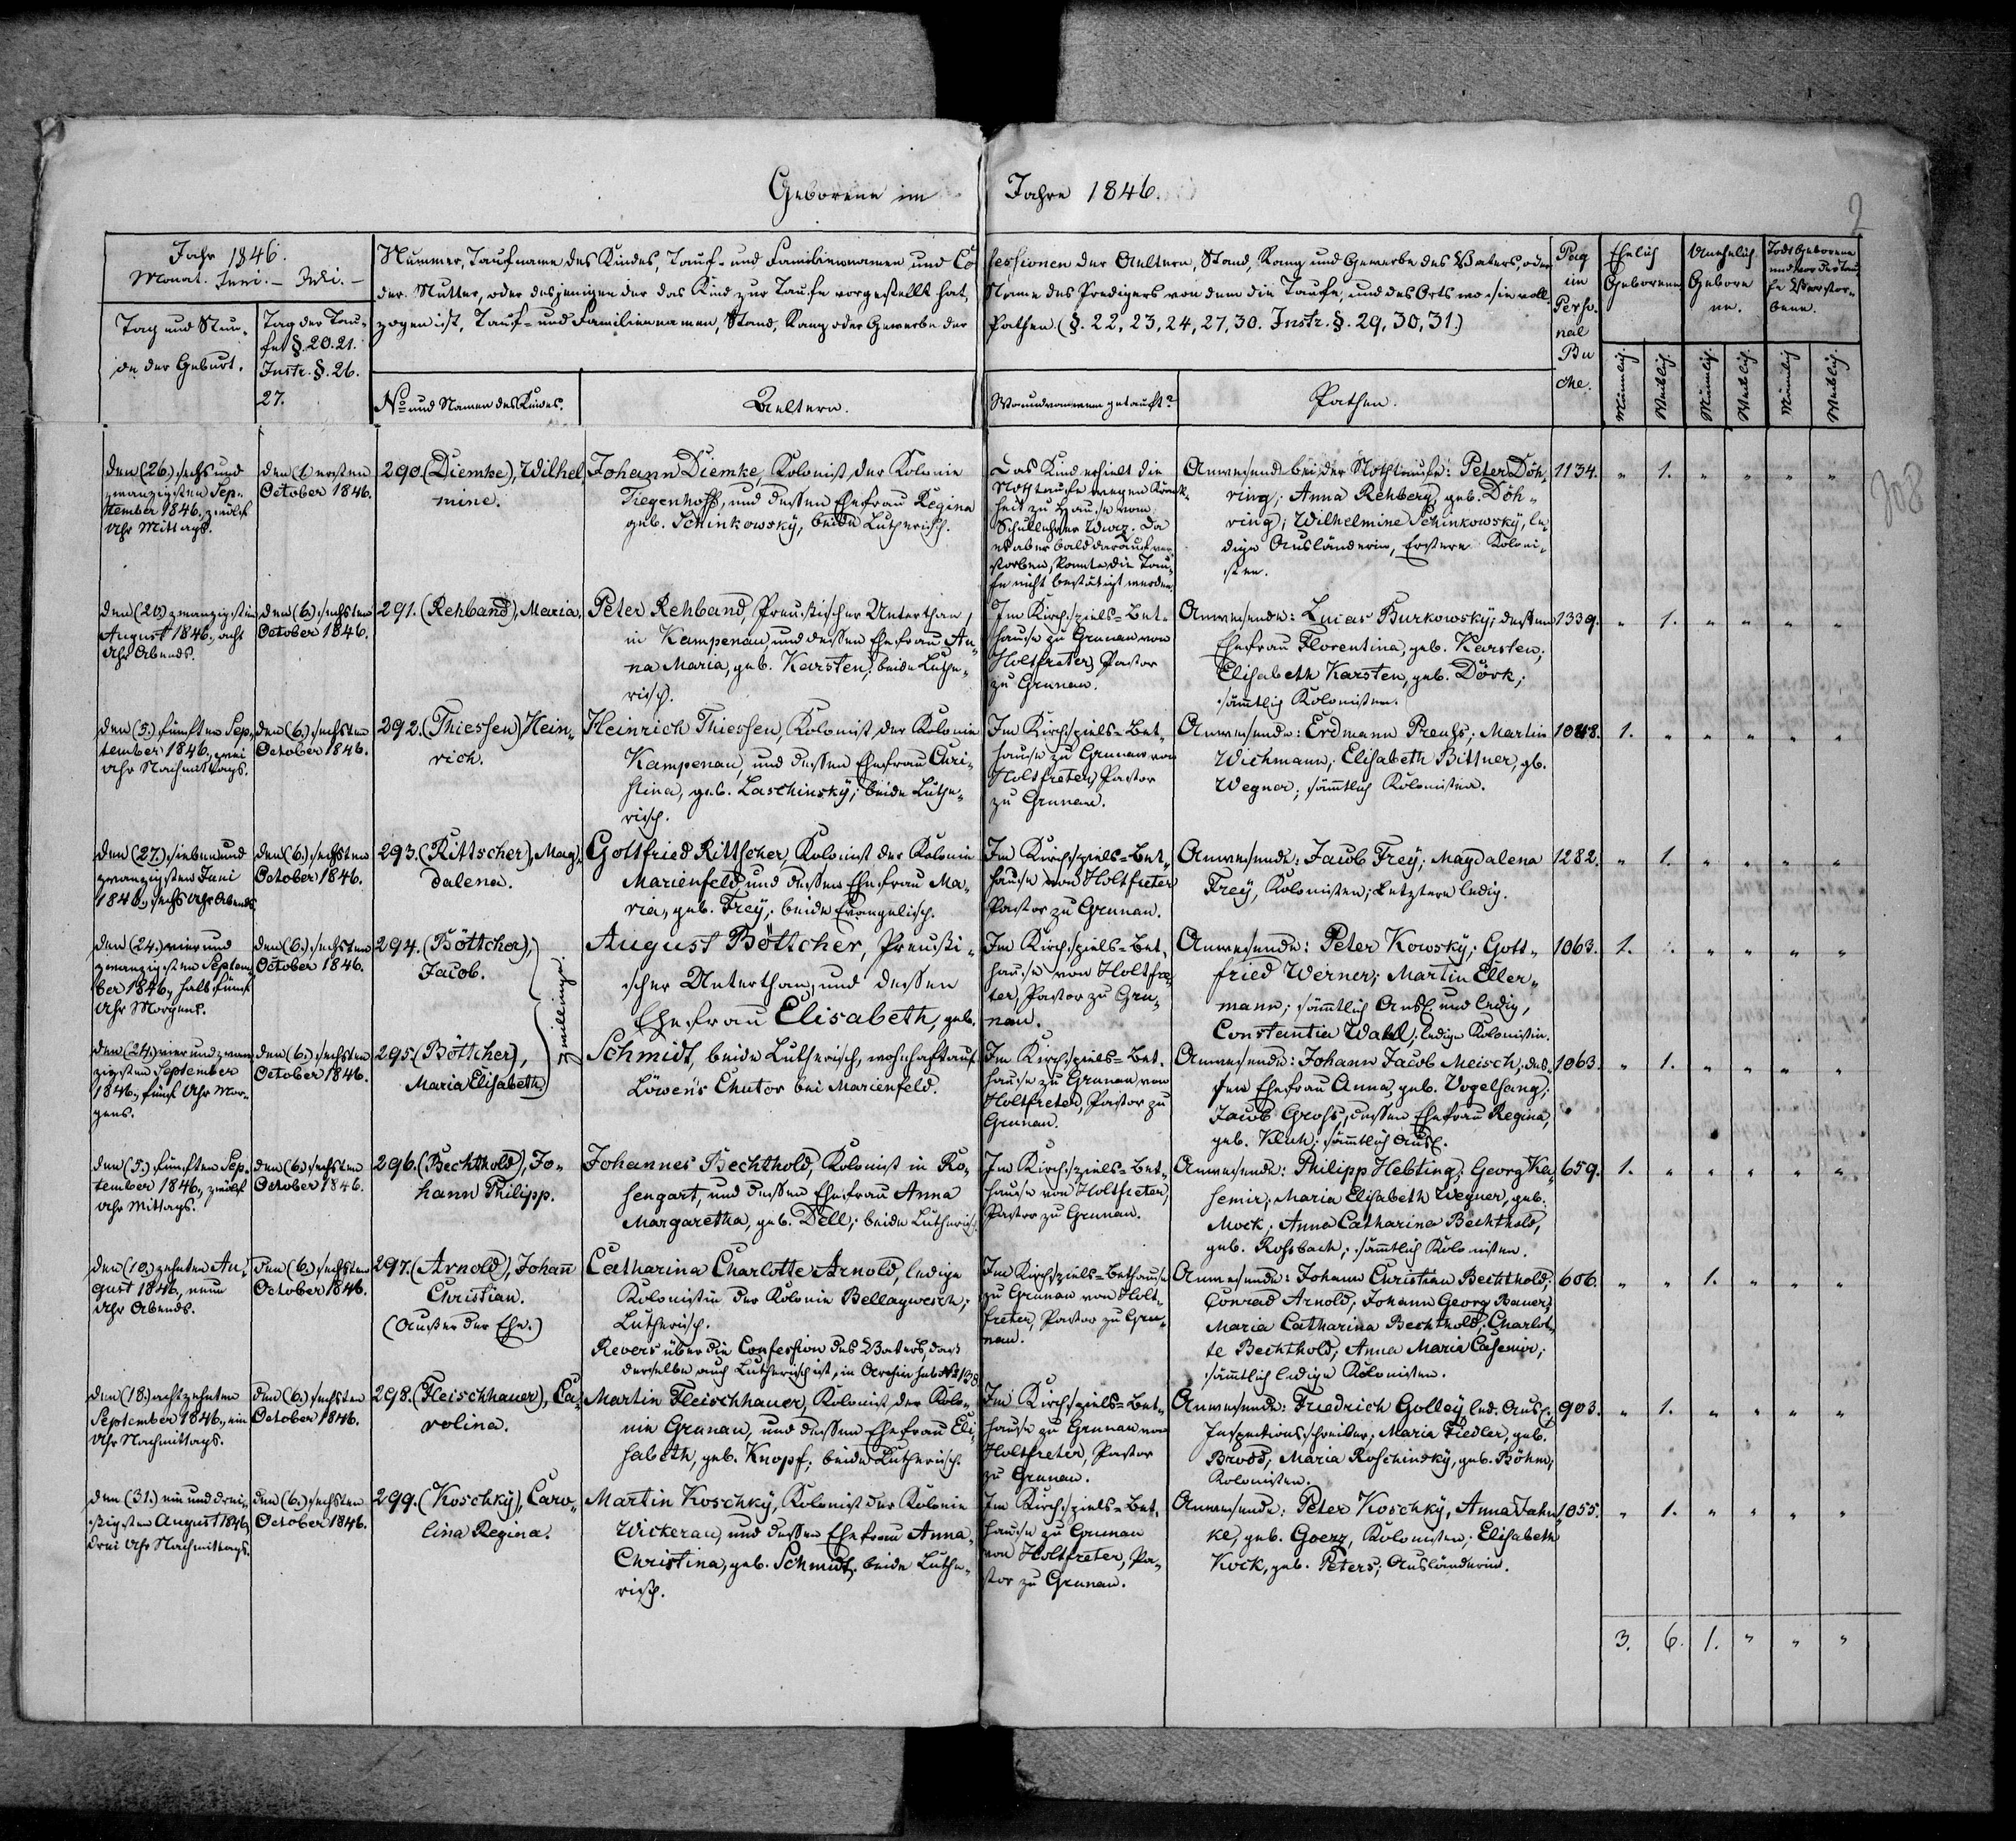 Geborene im Jahre 1846.
2
308
Jahr 1846.
Monat. Juni. – Juli. –
Tag und Stun-
de der Geburt.
Tag der Tau-
fe §. 20. 21.
Instr. §. 26.
27.
Nummer, Taufname des Kindes, Tauf- und Familiennamen und Co
fessionen der Aeltern, Stand, Rang und Gewerbe des Vaters, oder
der Mutter, oder desjenigen der das Kind zur Taufe vorgestellt hat,
Name des Predigers von dem die Taufe, und des Orts wo sie voll-
zogen ist, Tauf- und Familiennamen, Stand, Rang oder Gewerbe der
Pathen (§. 22, 23, 24, 27, 30. Instr. §. 29, 30, 31.)
No und Namen des Kindes.
Aeltern.
Wo und von wem getauft?
Pathen.
Pag
im
Perso-
nal
Bu
che.
Ehelich
Geborene
Unehelich
Gebore
ne.
Todt Geborene
und vor der Tau-
fe Verstor-
bene.
Männlich.
Weiblich.
Männlich.
Weiblich.
Männlich
Weiblich.
den (26.) sechs und
zwanzigsten Sep-
tember 1846., zwölf
Uhr Mittags.
den (1) ersten
October 1846.
290. (Diemke), Wilhel
mine.
Johann Diemke, Kolonist der Kolonie
Tiegenhoff, und dessen Ehefrau Regina
geb. Schinkowsky, beide Lutherisch.
Das Kind erhielt die
Nothtaufe wegen Krank-
heit zu Hause vom
Schullehrer Da
es aber bald darauf ver-
storben, konnte die Tau-
fe nicht bestätigt werden.
Anwesende bei der Nothtaufe: Peter Döh-
ring; Anna Rehberg, geb. Döh-
ring; Wilhelmine Schinkowsky, le-
dige Ausländerin, Erstere Koloni-
sten.
1134. " 1. " " " "
den (20.) zwanzigsten
August 1846., acht
Uhr Abends.
den (6.) sechsten
October 1846.
291. (Rehband), Maria.
Peter Rehband, Preußischer Unterthan,
in Kampenau, und dessen Ehefrau An-
na Maria, geb. Karsten; beide Luthe-
risch.
Im Kirchspiels-Bet-
hause zu Grunau von
Holtfreter, Pastor
zu Grunau.
Anwesende: Lucas Burkowsky; dessen
Ehefrau Florentina, geb. Karsten;
Elisabeth Karsten, geb. Dörk;
sämtlich Kolonisten.
1339. " 1. " " " "
den (5.) fünften Sep-
tember 1846., zwei
Uhr Nachmittags.
den (6.) sechsten
October 1846.
292. (Thiessen) Hein-
rich.
Heinrich Thiessen, Kolonist der Kolonie
Kampenau, und dessen Ehefrau Chri-
stina, geb. Laschinsky; beide Luthe-
risch.
Im Kirchspiels-Bet-
hause zu Grunau von
Holtfreter, Pastor
zu Grunau.
Anwesende: Erdmann Preuss; Martin
Wichmann; Elisabeth Bittner, gb.
Wegner; sämtlich Kolonisten.
1048. 1. " " " " "
den (27.) sieben und
zwanzigsten Juni
1846., sechs Uhr Abends
den (6.) sechsten
October 1846.
293. (Rittscher), Mag-
dalena.
Gottfried Rittscher, Kolonist der Kolonie
Marienfeld und dessen Ehefrau Ma-
ria, geb. Frey; beide Evangelisch.
Im Kirchspiels-Bet-
hause von Holtfreter
Pastor zu Grunau.
Anwesende: Jacob Frey; Magdalena
Frey, Kolonisten; Letztere ledig.
1282. " 1. " " " "
den (24.) vier und
zwanzigsten Septem-
ber 1846., halb fünf
Uhr Morgens.
den (6.) sechsten
October 1846.
294. (Böttcher),
Jacob.
Zwillinge.
August Böttcher, Preußi-
scher Unterthan, und dessen
Ehefrau Elisabeth, geb.
Im Kirchspiels-Bet-
hause von Holtfre-
ter, Pastor zu Gru-
nau.
Anwesende: Peter Kowsky; Gott-
fried Werner; Martin Eller-
mann; sämtlich Ausl. und ledig,
Constantia Wahl, ledige Kolonistin.
1063. 1. " " " " "
den (24.) vier und zwan-
zigsten September
1846., fünf Uhr Mor-
gens.
den (6.) sechsten
October 1846.
295. (Böttcher),
Maria Elisabeth
Schmidt, beide Lutherisch, wohnhaft auf
Löwen's Chutor bei Marienfeld.
Im Kirchspiels-Bet-
hause zu Grunau, von
Holtfreter, Pastor zu
Grunau.
Anwesende: Johann Jacob Meisch, des-
sen Ehefrau Anna, geb. Vogelsang;
Jacob Gross, dessen Ehefrau Regina,
geb. sämtlich Ausl.
1063. " 1. " " " "
den (5.) fünften Sep-
tember 1846., zwölf
Uhr Mittags.
den (6.) sechsten
October 1846.
296. (Bechthold), Jo-
hann Philipp.
Johannes Bechthold, Kolonist in Ro-
sengart, und dessen Ehefrau Anna
Margaretha, geb. Dell; beide Lutherisch.
Im Kirchspiels-Bet-
hause von Holtfreter,
Pastor zu Grunau.
Anwesende: Philipp Hebting; Georg Ka-
semir; Maria Elisabeth Wegner, geb.
Mock; Anna Catharina Bechthold,
geb. Rossbach; sämtlich Kolonisten.
659. 1. " " " " "
den (10.) zehnten Au-
gust 1846., neun
Uhr Abends.
den (6.) sechsten
October 1846.
297. (Arnold), Johann
Christian.
(Außer der Ehe.)
Catharina Charlotte Arnold, ledige
Kolonistin der Kolonie Bellagwesch;
Lutherisch.
Revers über die Confession des Vaters, daß
derselbe auch Lutherisch ist, in Archiv sub No 128
Im Kirchspiels-Bethause
zu Grunau von Holt-
freter, Pastor zu Gru-
nau.
Anwesende: Johann Christian Bechthold;
Conrad Arnold; Johann Georg Bauer;
Maria Catharina Bechthold; Charlot-
te Bechthold; Anna Maria Casemir;
sämtlich ledige Kolonisten.
606. " " 1. " " "
den (18.) achtzehnten
September 1846., ein
Uhr Nachmittags.
den (6.) sechsten
October 1846.
298. (Fleischhauer), Ca-
rolina.
Martin Fleischhauer, Kolonist der Kolo-
nie Grunau, und dessen Ehefrau Eli-
sabeth, geb. Knopf; beide Lutherisch.
Im Kirchspiels-Bet-
hause zu Grunau von
Holtfreter, Pastor
zu Grunau.
Anwesende: Friedrich Golley led. Ausl.,
Inspectionsschreiber; Maria Fiedler, geb.
Brodd; Maria Roschinsky, geb. Böhm;
Kolonisten.
903. " 1. " " " "
den (31.) ein und drei-
ßigsten August 1846,
drei Uhr Nachmittags.
den (6.) sechsten
October 1846.
299. (Koschky), Caro-
lina Regina.
Martin Koschky, Kolonist der Kolonie
Wickerau, und dessen Ehefrau Anna
Christina, geb. Schmidt; beide Luthe-
risch.
Im Kirchspiels-Bet-
hause zu Grunau
von Holtfreter, Pa-
stor zu Grunau.
Anwesende: Peter Koschky, Anna Jahn-
ke, geb. Goerz, Kolonisten; Elisabeth
Kock, geb. Peters; Ausländerin.
1055. " 1. " " " "
3. 6. 1. " " "